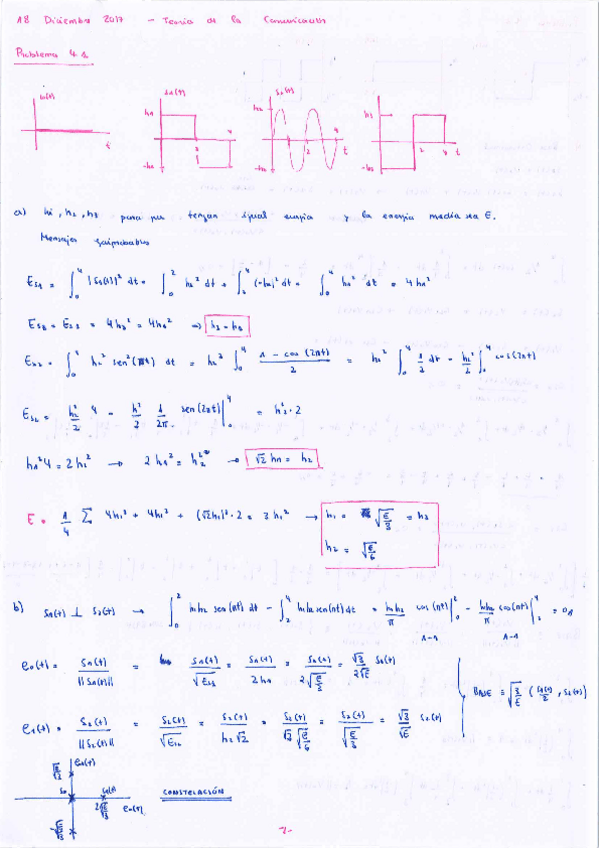 18 Diciembre 2017 - Teoría de la Comunicación
Problema 4.1
s0(t) s1(t) s2(t)
h1 h2 h3
-h1 -h2 -h3
t 2 4 t 2 4 t 2 4 t
a) h1, h2, h3 para que tengan igual energía y la energía media sea E.
Mensajes equiprobables
Es1 = ∫₀⁴ |s1(t)|² dt = ∫₀² h1² dt + ∫₂⁴ (-h1)² dt = ∫₀⁴ h1² dt = 4h1²
Es3 = Es1 = 4h3² = 4h1² → h3 = h1
Es2 = ∫₀⁴ h2² sen²(πt) dt = h2² ∫₀⁴ (1 - cos(2πt))/2 = h2² ∫₀⁴ 1/2 dt - h2²/2 ∫₀⁴ cos(2πt)
Es2 = h2²/2 4 - h2²/2 1/2π sen(2πt)|₀⁴ = h2²·2
h1² 4 = 2h2² → 2h1² = h2² → √2 h1 = h2
E = 1/4 Σ 4h1² + 4h1² + (√2h1)²·2 = 3h1² → h1 = √(E/3) = h3
h2 = √(E/6)
b) s1(t) ⊥ s2(t) → ∫₀² h1h2 sen(πt) dt - ∫₂⁴ h1h2 sen(πt) dt = h1h2/π cos(πt)|₀² - h1h2/π cos(πt)|₂⁴ = 0
1-1 1-1
e0(t) = s1(t)/||s1(t)|| = s1(t)/√Es1 = s1(t)/2h1 = s1(t)/2√(E/3) = √3/2√E s1(t)
BASE = √(3/E) (s1(t)/2, s2(t))
e1(t) = s2(t)/||s2(t)|| = s2(t)/√Es2 = s2(t)/h2√2 = s2(t)/√2√(E/6) = s2(t)/√(E/3) = √3/√E s2(t)
e1(t)
s0 s1(t)
2√(E/3) e0(t)
CONSTELACIÓN